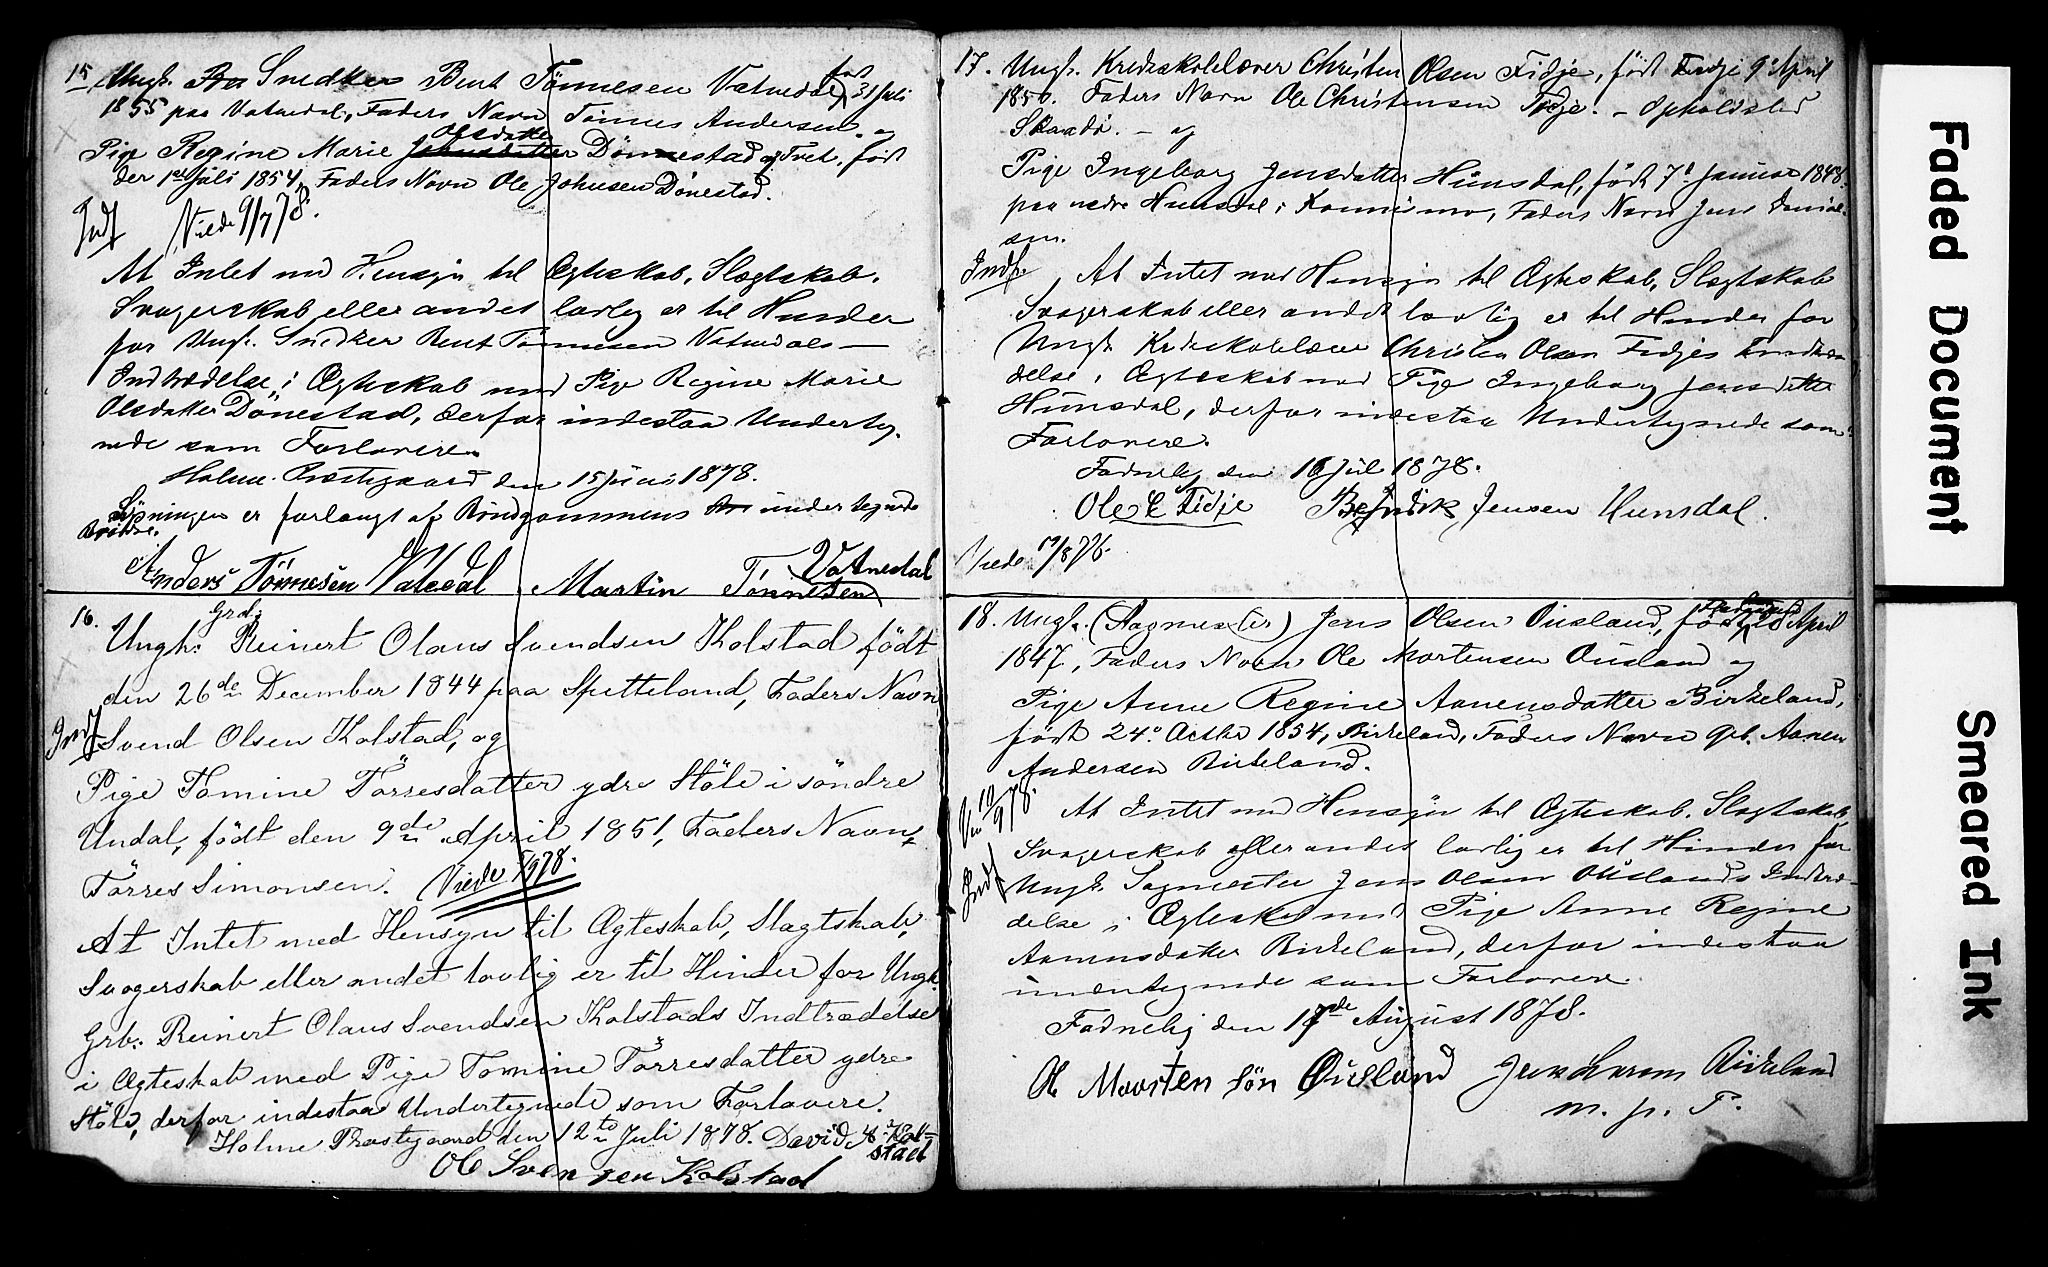 15 Ungk. Snedker Bent Tønnesen Vatnedal, født 31 Juli
1855 paa Vatnedal, Faders Navn Tønnes Andersen. og
Pige Regine Marie Olsdatter Dønnestad og Tvet, født
der 1ste Juli 1854, Faders Navn Ole Johnsen Dönestad.
Indf Viede 9/7 78.
At Intet med Hensyn til Ægteskab, Slægtskab,
Svogerskab eller andet lovlig er til Hinder
for Ungk. Snedker Bent Tønnesen Vatnedals
Indtrædelse i Ægteskab med Pige Regine Marie
Olsdatter Dönestad, derfor indestaa Underteg-
nede som Forlovere.
Holme Præstegaard den 15 Juni 1878.
Lysningen er forlangt af Brudgommens undertegnede
Brödre.
Anders Tönnesen Vatnedal Martin Tónnesen Vatnedal
16. Ungk: Grb: Reinert Olaus Svendsen Kolstad født
den 26de December 1844 paa Spetteland, Faders Navn
Indf Svend Olsen Kolstad, og
Pige Tomine Törresdatter ydre Stöle i söndre
Undal, födt den 9de April 1851, Faders Navn
Törres Simonsen. Viede 78.
At Intet med Hensyn til Ægteskab, Slagtskab,
Svogerskab eller andet lovlig er til Hinder for Ungk.
Grb: Reinert Olaus Svendsen Kolstads Indtrædelse
i Ægteskab med Pige Tomine Törresdatter ydre
Stöle, derfor indestaa Undertegnede som Forlovere.
Holme Præstegaard den 12te Juli 1878. David S. Kol-
stad
Ole Svensen Kolstad
17. Ungk. Kredsskolelærer Christen Olsen Fidje, född Fidje 9 April
1850. Faders Navn Ole Christensen Fidje. - Opholdsted
- og
Pige Ingeborg Jensdatter Hunsdal, född 7d Januar 1848
paa nedre Hunsdal i Faders Navn Jens Daniel-
sen.
Indf. At Intet med Hensyn til Ægteskab, Slægtskab
Svogerskab eller andet lovlig er til Hinder for
Ungk. Kredsskolelærer Christen Olsen Fidjes Indtræ-
delse i Ægteskab med Pige Ingeborg Jensdatter
Hunsdal, derfor indestaa Undertegnede som
Forlovere.
Fodnebj den 16 Juli 1878.
Ole C Fidje Jensen Hunsdal.
Viede
18. Ungk. (Sagmester) Jens Olsen Øusland, född April
1847, Faders Navn Ole Mortensen Øusland og
Pige Anne Regine Aanensdatter Birkeland,
född 24de Octbr 1854, Birkeland, Faders Navn Grb. Aanen
Andersen Birkeland.
At Intet med Hensyn til Ægteskab, Slægtskab,
Svogerskab eller andet lovlig er til Hinder for
Indf Ungk. Sagmester Jens Olsen Øuslands Indtræ-
delse i Ægteskab med Pige Anne Regine
Aanensdatter Birkeland, derfor indestaa
undertegnede som Forlovere.
Fodnebj den 17de August 1878.
Ole Moorten Sön Øusland Birkeland
m. p. P.
Faded Document
Smeared Ink